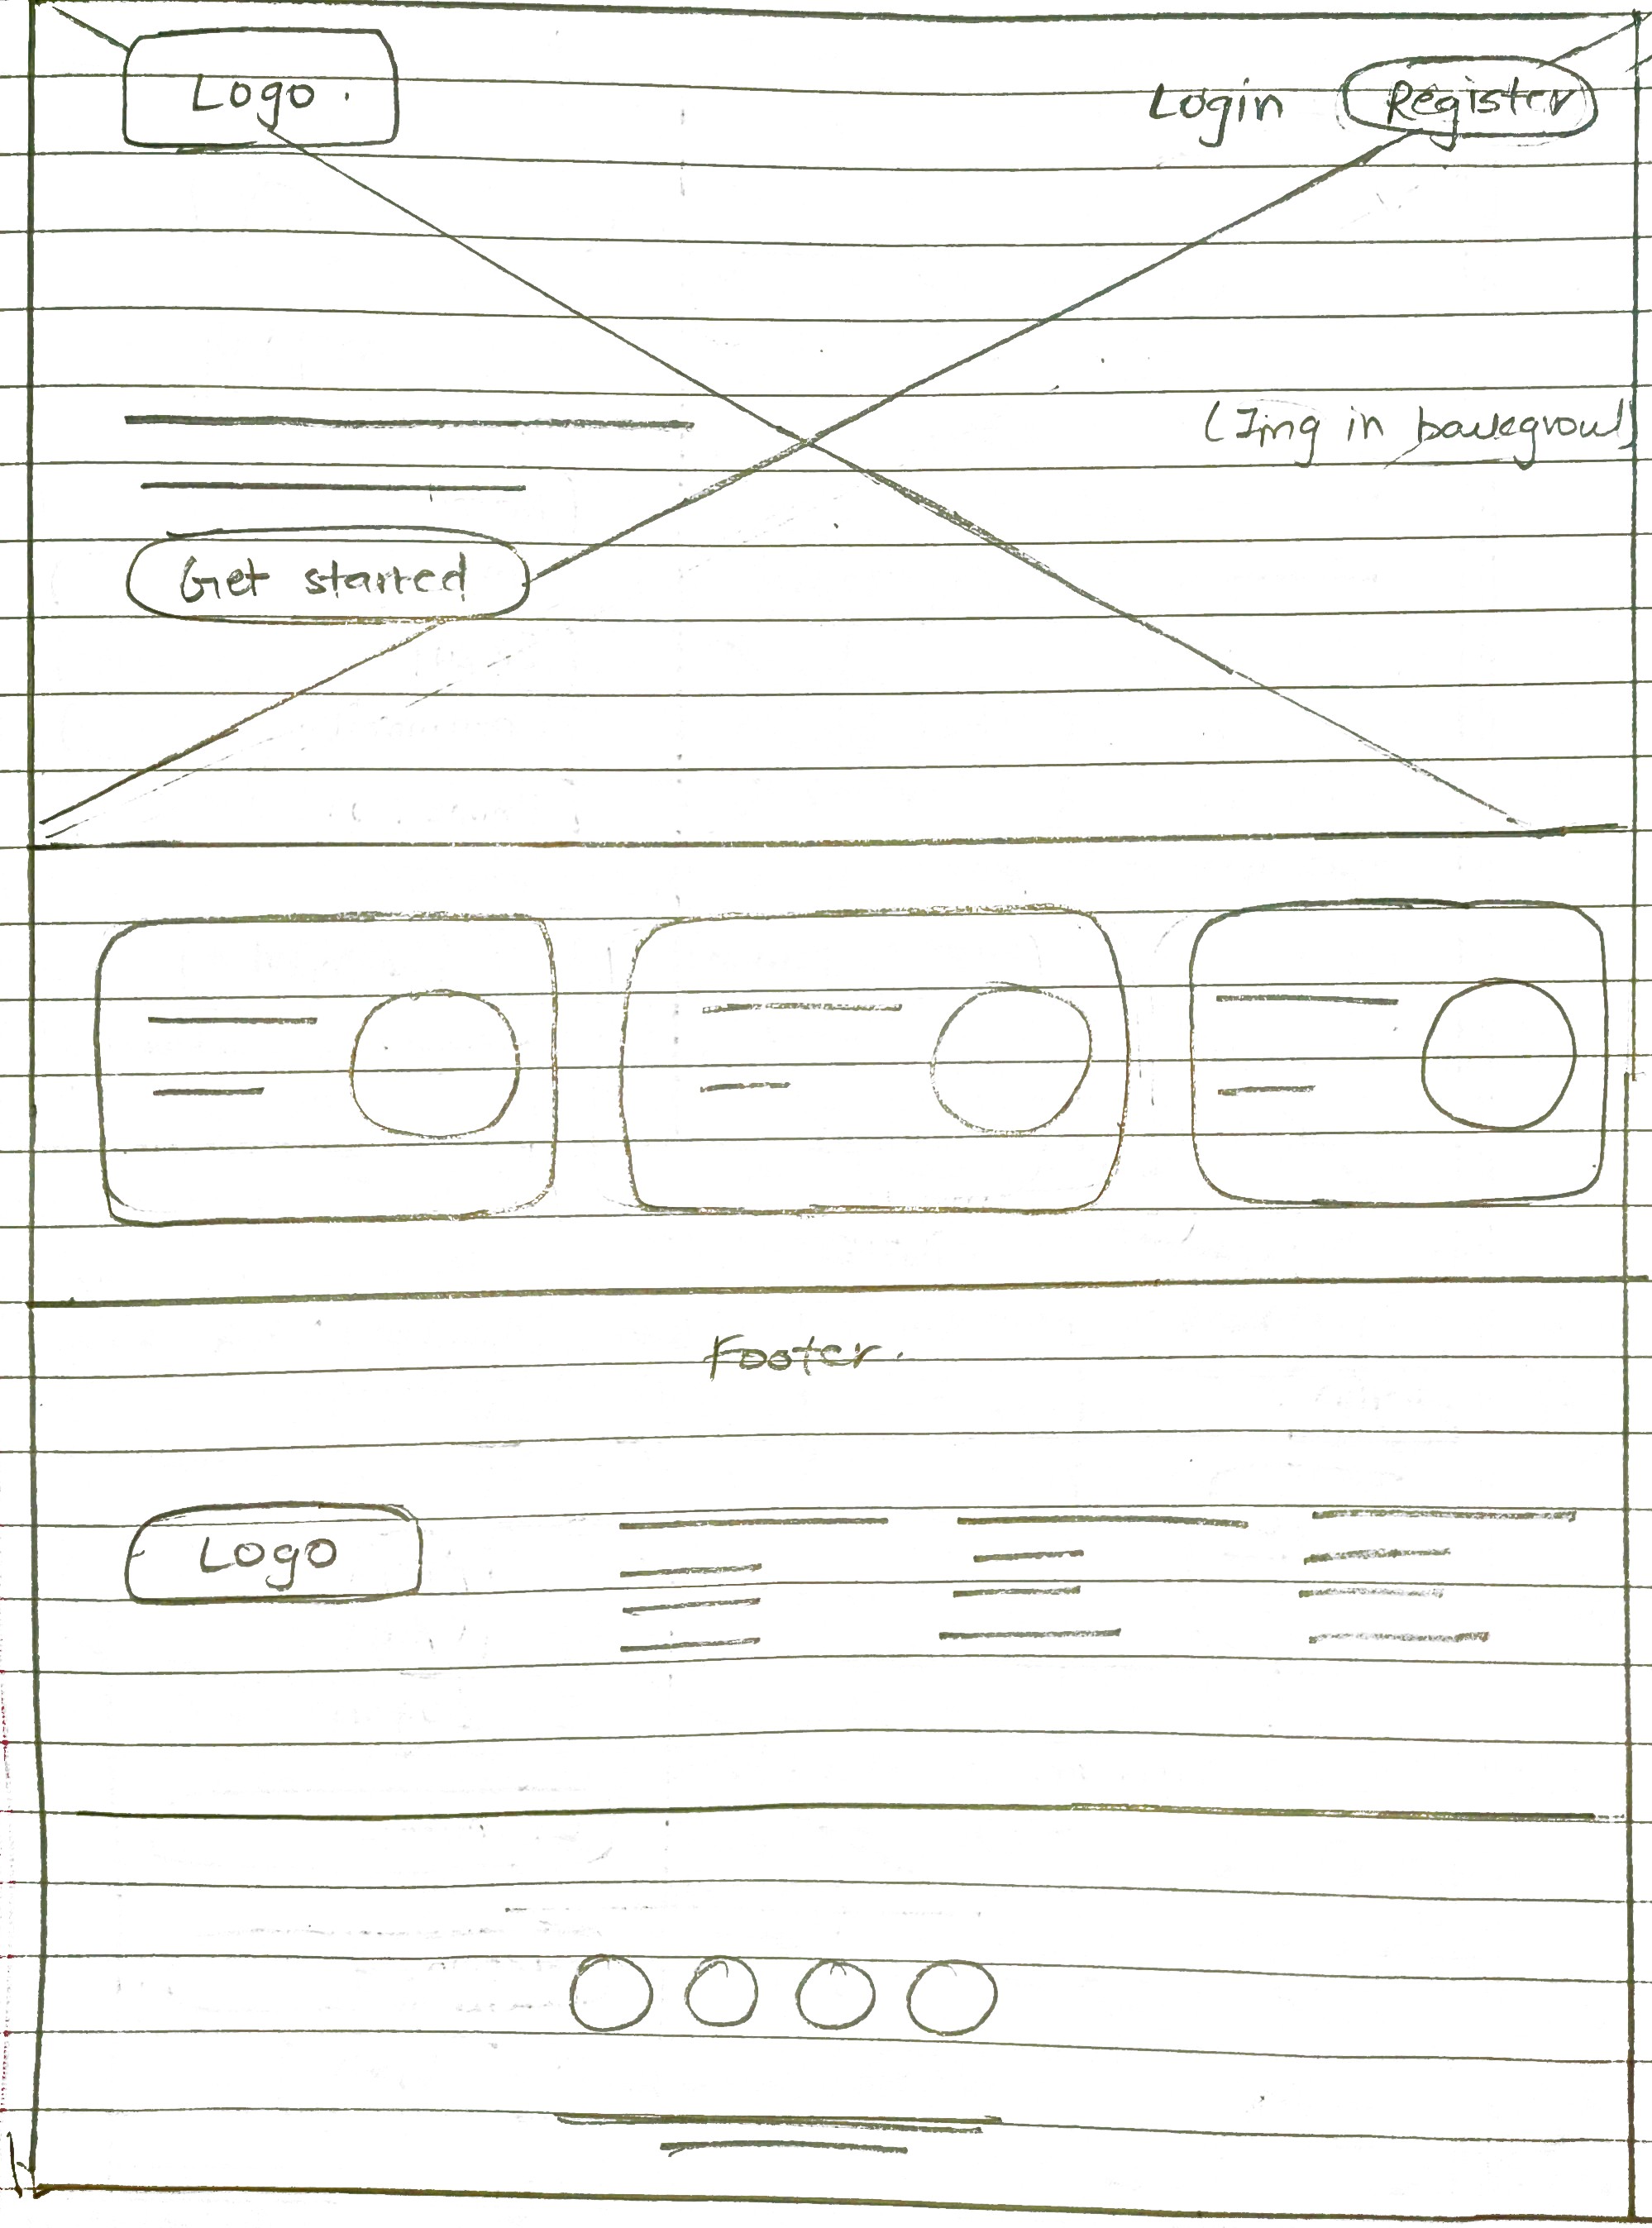 Logo.
Login Register
(Img in backgroud)
Get started
Footer.
Logo